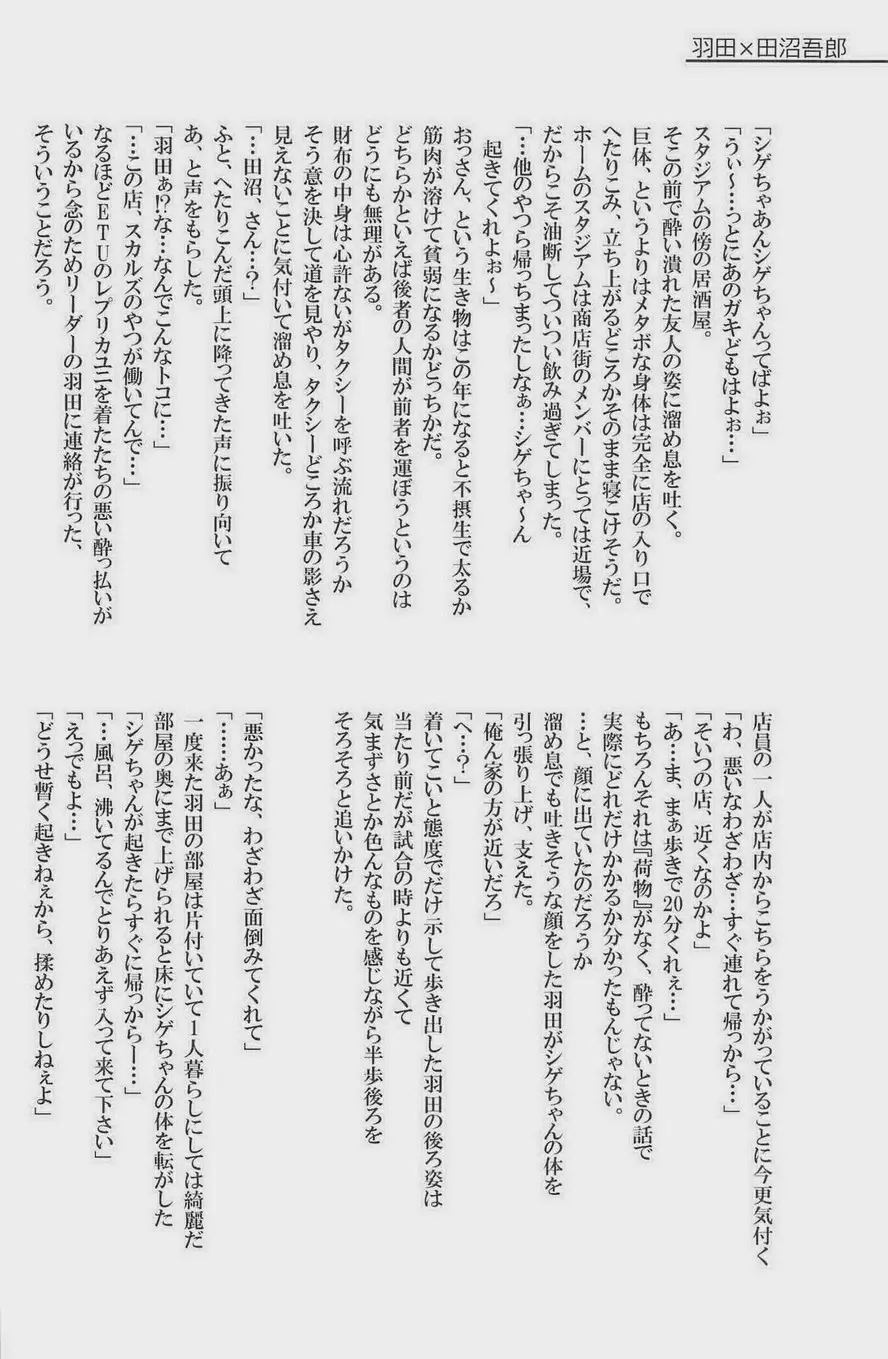 羽田×田沼吾郎
「シゲちゃあんシゲちゃんってばよぉ」
「うぃ～…っとにあのガキどもはよぉ…」
スタジアムの傍の居酒屋。
そこの前で酔い潰れた友人の姿に溜め息を吐く。
巨体、というよりはメタボな身体は完全に店の入り口で
へたりこみ、立ち上がるどころかそのまま寝こけそうだ。
ホームのスタジアムは商店街のメンバーにとっては近場で、
だからこそ油断してついつい飲み過ぎてしまった。
「…他のやつら帰っちまったしなぁ…シゲちゃ～ん
起きてくれよぉ～」
おっさん、という生き物はこの年になると不摂生で太るか
筋肉が溶けて貧弱になるかどっちかだ。
どちらかといえば後者の人間が前者を運ぼうというのは
どうにも無理がある。
財布の中身は心許ないがタクシーを呼ぶ流れだろうか
そう意を決して道を見やり、タクシーどころか車の影さえ
見えないことに気付いて溜め息を吐いた。
「…田沼、さん…？」
ふと、へたりこんだ頭上に降ってきた声に振り向いて
あ、と声をもらした。
「羽田ぁ!?な…なんでこんなトコに…」
「…この店、スカルズのやつが働いてんで…」
なるほどＥＴＵのレプリカユニを着たたちの悪い酔っ払いが
いるから念のためリーダーの羽田に連絡が行った、
そういうことだろう。
店員の一人が店内からこちらをうかがっていることに今更気付く
「わ、悪いなわざわざ…すぐ連れて帰っから…」
「そいつの店、近くなのかよ」
「あ…ま、まぁ歩きで20分くれぇ…」
もちろんそれは『荷物』がなく、酔ってないときの話で
実際にどれだけかかるか分かったもんじゃない。
…と、顔に出ていたのだろうか
溜め息でも吐きそうな顔をした羽田がシゲちゃんの体を
引っ張り上げ、支えた。
「俺ん家の方が近いだろ」
「へ…？」
着いてこいと態度でだけ示して歩き出した羽田の後ろ姿は
当たり前だが試合の時よりも近くて
気まずさとか色んなものを感じながら半歩後ろを
そろそろと追いかけた。
「悪かったな、わざわざ面倒みてくれて」
「……あぁ」
一度来た羽田の部屋は片付いていて1人暮らしにしては綺麗だ
部屋の奥にまで上げられると床にシゲちゃんの体を転がした
「シゲちゃんが起きたらすぐに帰っからー…」
「…風呂、沸いてるんでとりあえず入って来て下さい」
「えっでもよ…」
「どうせ暫く起きねぇから、揉めたりしねぇよ」